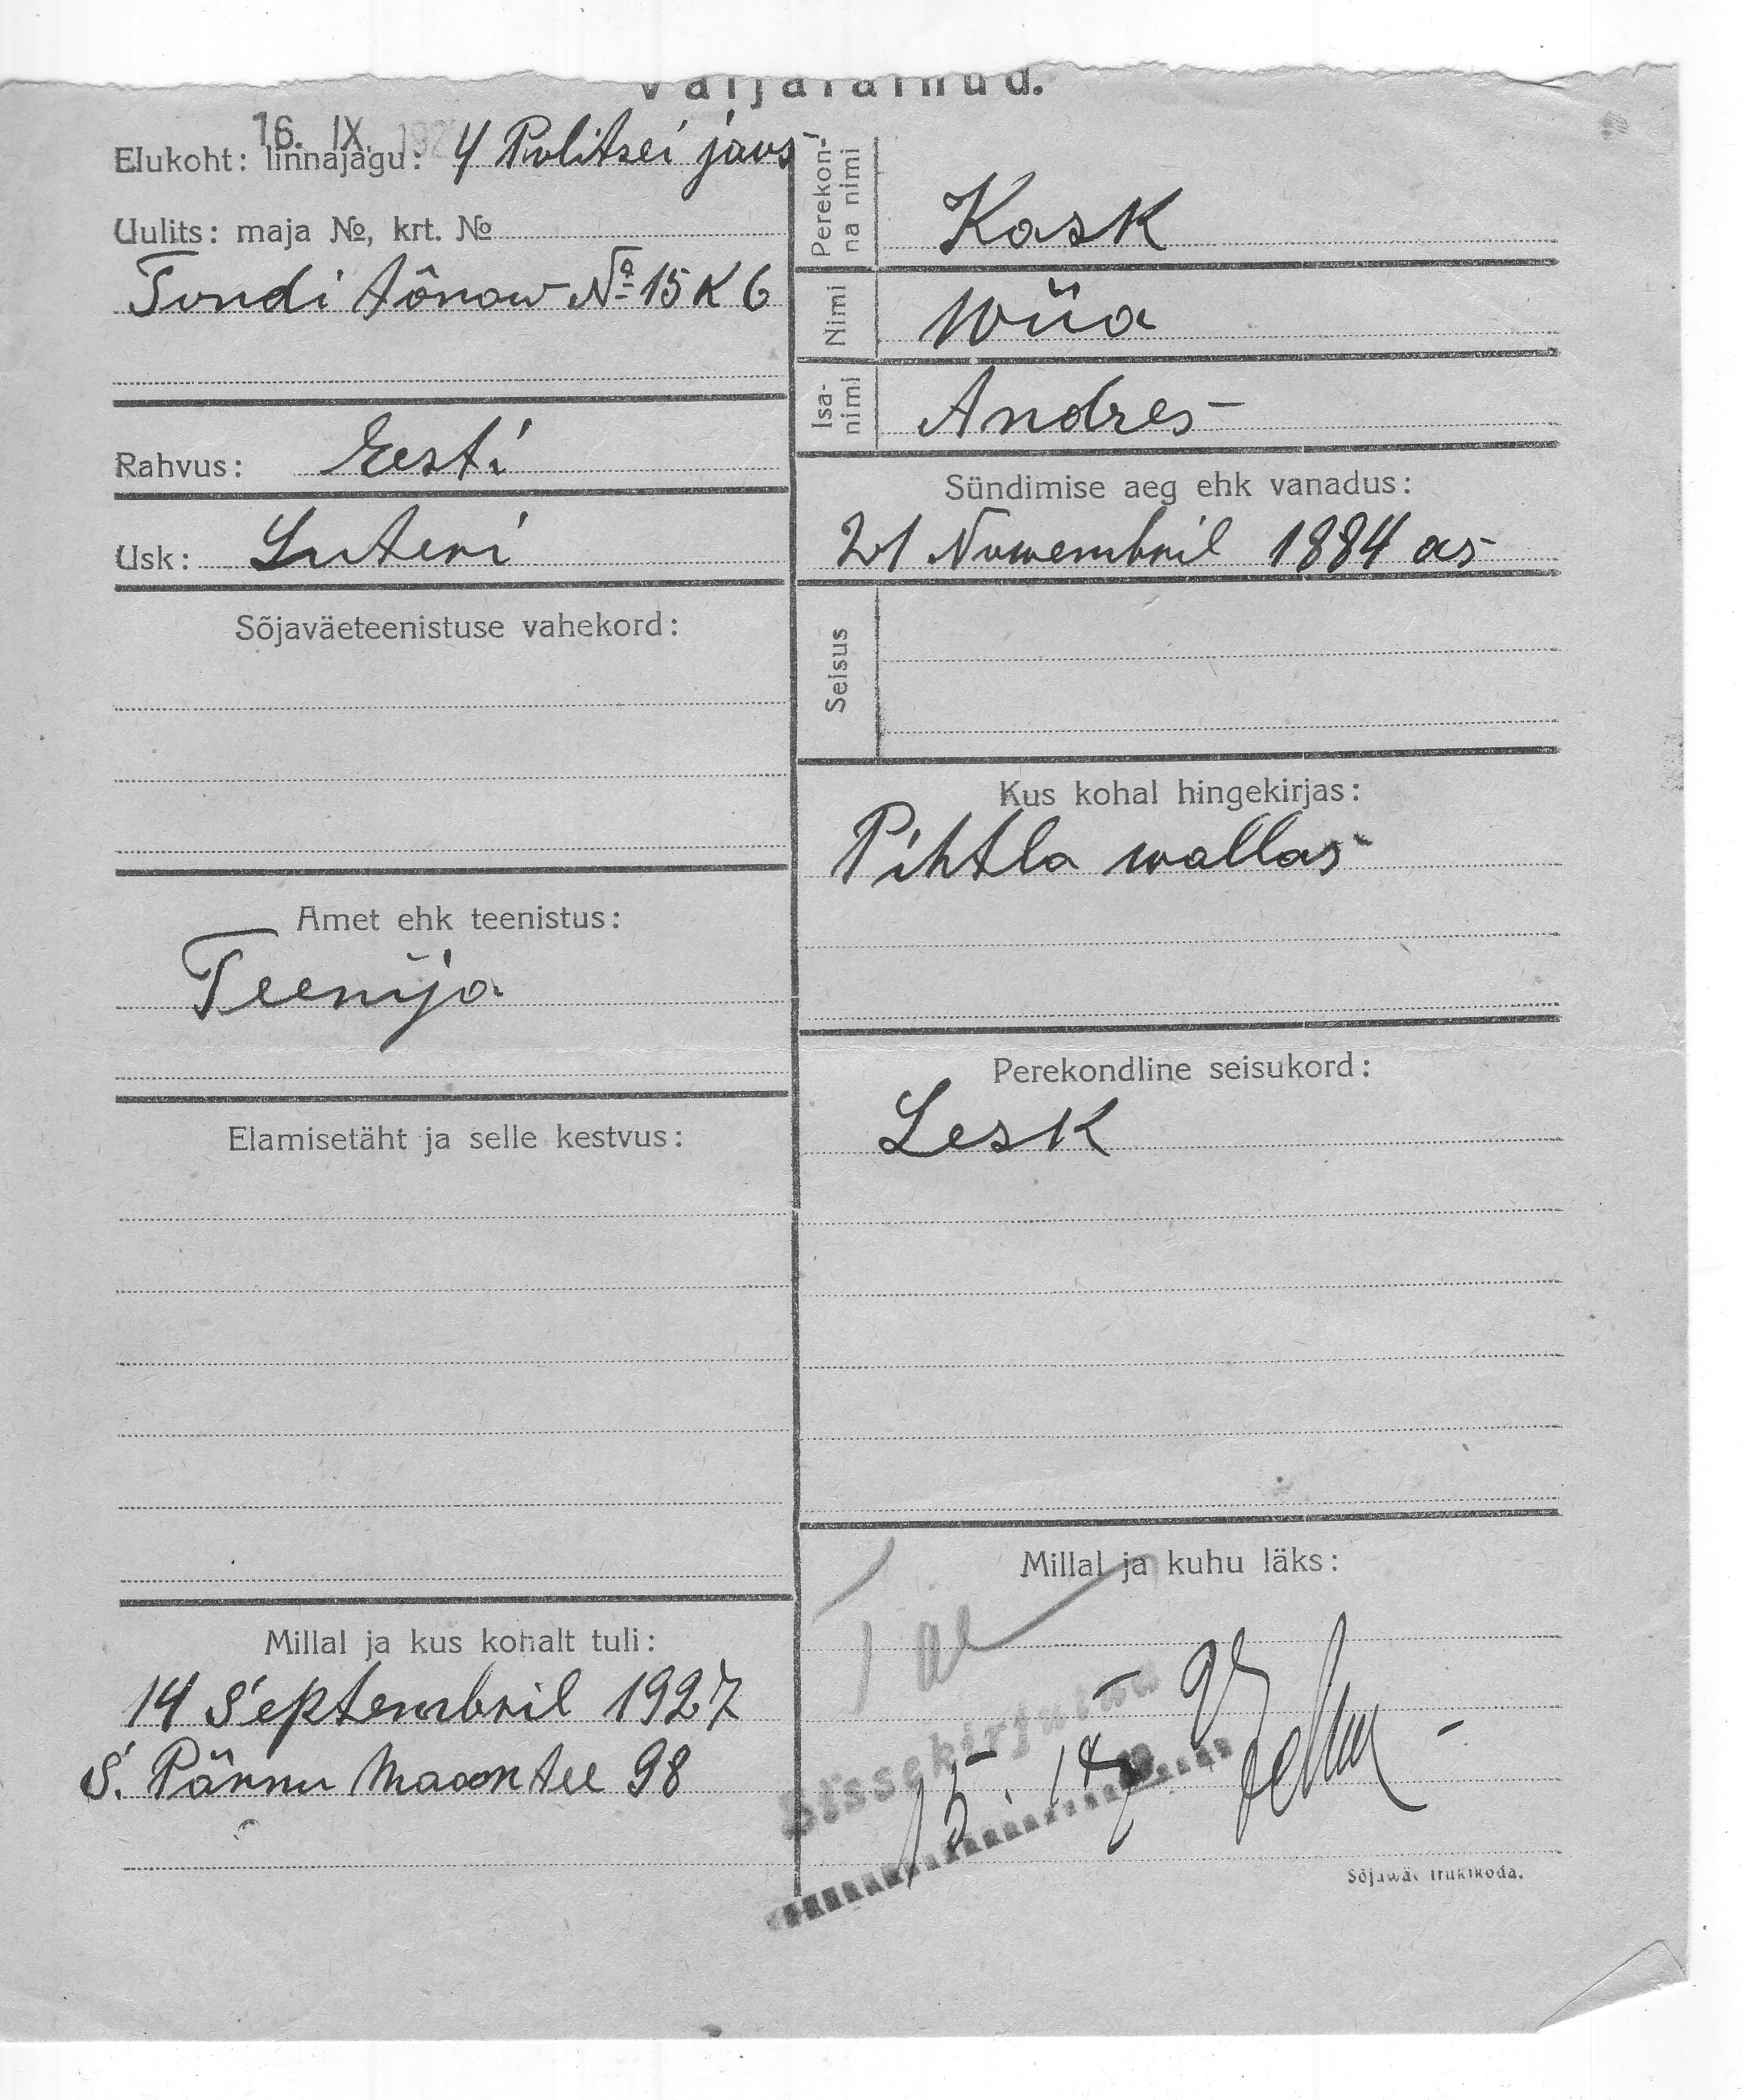 Väljaläinud.
16. IX. 192
Elukoht: linnajagu: 4 Politsei jaos
Uulits: maja №, krt. №
Tondi tänaw № 15 K 6
Rahvus: Eesti
Usk: Luteri
Sõjaväeteenistuse vahekord:
Amet ehk teenistus:
Teenija
Elamisetäht ja selle kestvus:
Millal ja kus kohalt tuli:
14 Septembril 1927
S. Pärnu Maantee 98
Perekonna nimi Kask
Nimi Wiia
Isanimi Andres
Sündimise aeg ehk vanadus:
21 Nowembril 1884 as
Seisus
Kus kohal hingekirjas:
Pihtla wallas
Perekondline seisukord:
Lesk
Millal ja kuhu läks:
Sissekirjutud
Sõjawäe trükikoda.